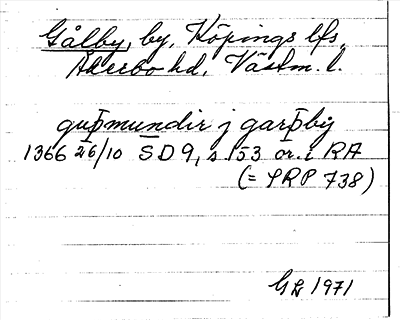 Gålby, by, Köpings lfs,
Åkerbo hd, Västm. l.
guþmundir j garþby
1366 26/10 SD 9, s 153 or. i RA
(= SRP 738)
GL 1971